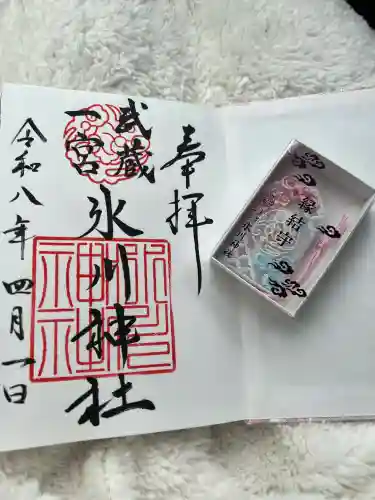 奉拝
武蔵
一宮
氷川神社
令和八年四月一日
縁結守
氷川神社